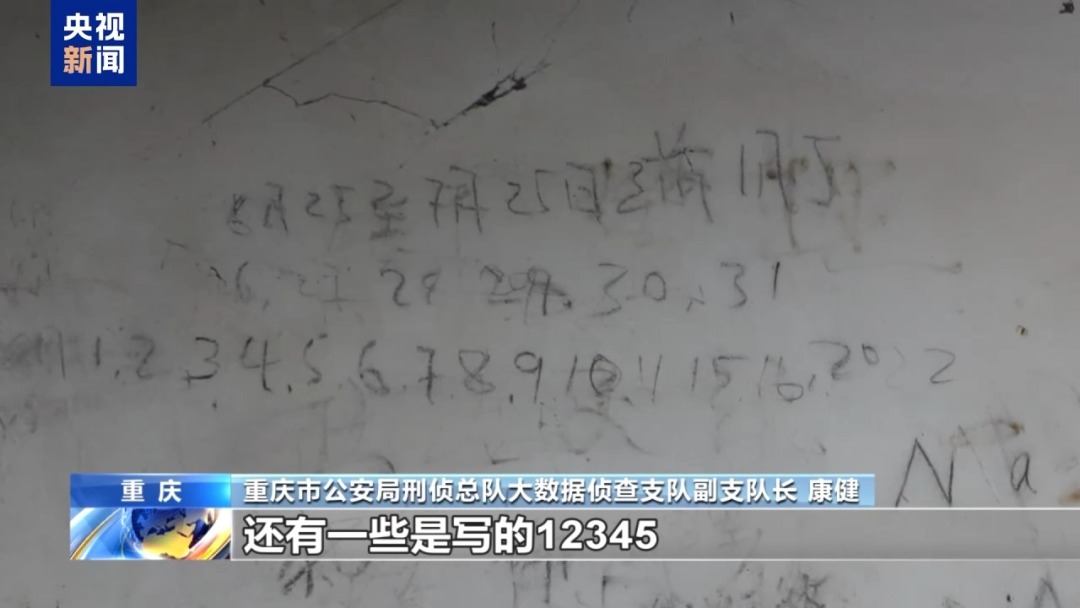 央视
新闻
8月25至7月25日 前1月
26, 27 29 30, 31
1, 2, 3, 4, 5, 6, 7, 8, 9, 10, 11 15 16, 20 22
Na
重庆
重庆市公安局刑侦总队大数据侦查支队副支队长 康健
还有一些是写的12345